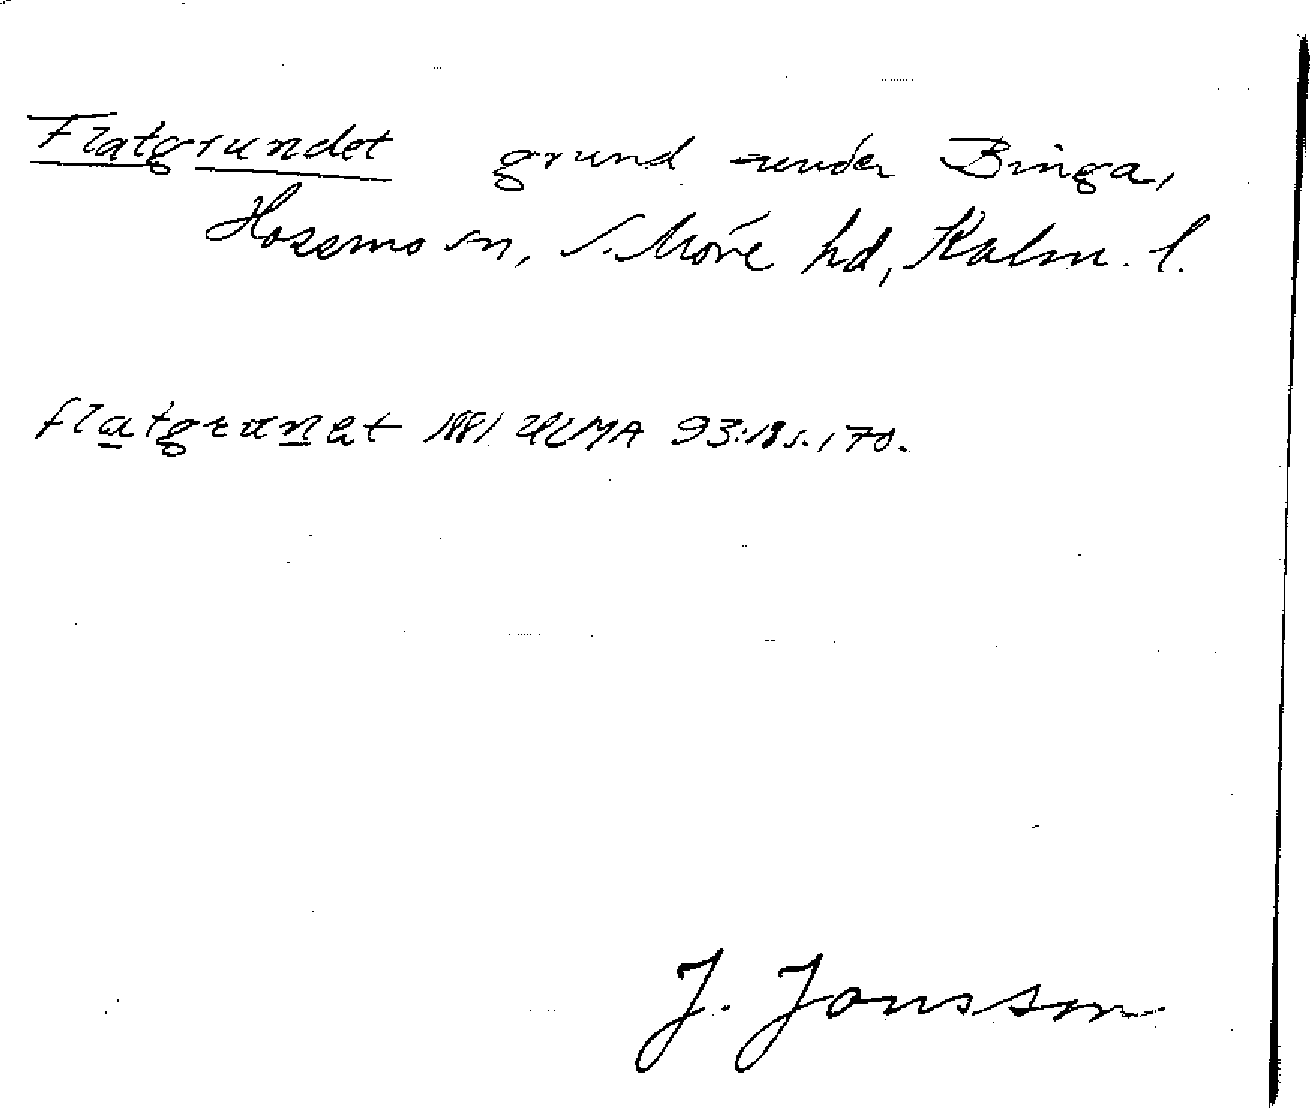 Flatgrundet grund under Binga,
Hossmo sn, S. Möre hd, Kalm. l.
flatgrunet 1881 ULMA 93:18 s. 170.
J. Jonsson